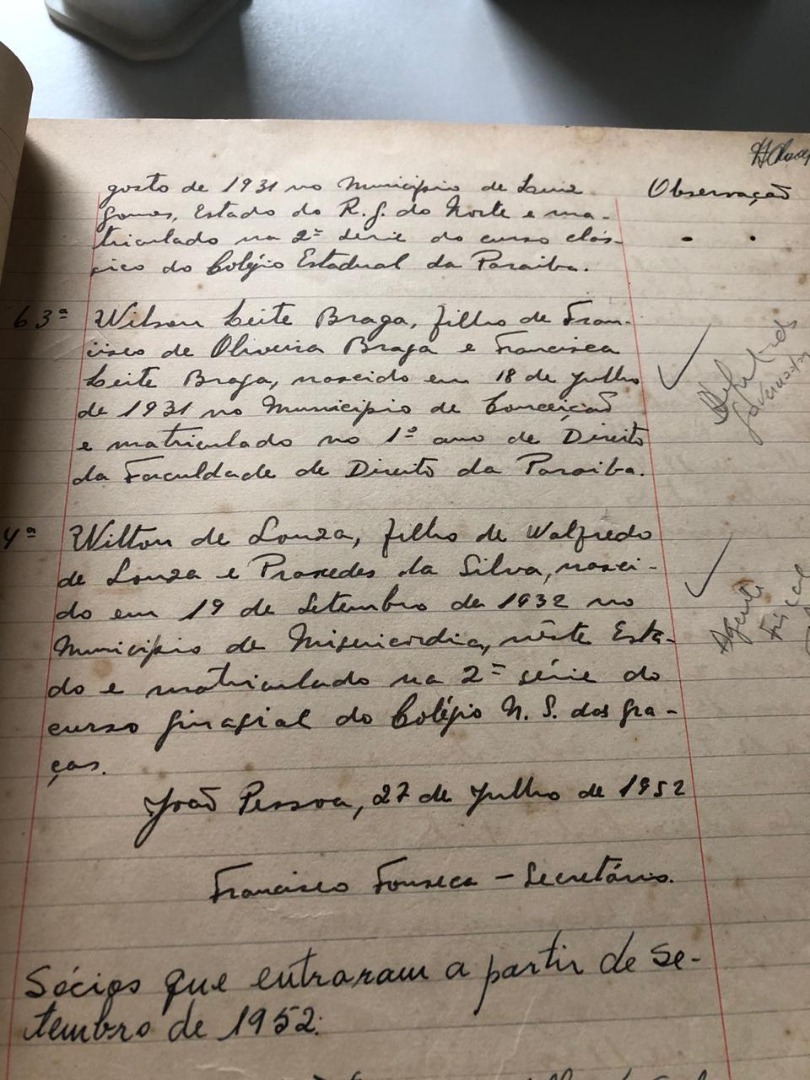 gosto de 1931 no Município de Luiz
Gomes, Estado do R. G. do Norte e ma-
triculado na 2ª série do curso clás-
sico do Colégio Estadual da Paraiba.
Observação
63ª Wilson Leite Braga, filho de Fran-
cisco de Oliveira Braga e Francisca
Leite Braga, nascido em 18 de Julho
de 1931 no Município de Conceição
e matriculado no 1º ano de Direito
da Faculdade de Direito da Paraiba.
Deputado
Governador
4ª Wilton de Souza, filho de Walfredo
de Souza e Praxedes da Silva, nasci-
do em 19 de Setembro de 1932 no
Município de Misericordia, nêste Esta-
do e matriculado na 2ª série do
curso ginasial do Colégio N. S. das Gra-
ças.
Agente
Fiscal
João Pessoa, 27 de Julho de 1952
Francisco Fonseca - Secretário.
Sócios que entraram a partir de Se-
tembro de 1952: